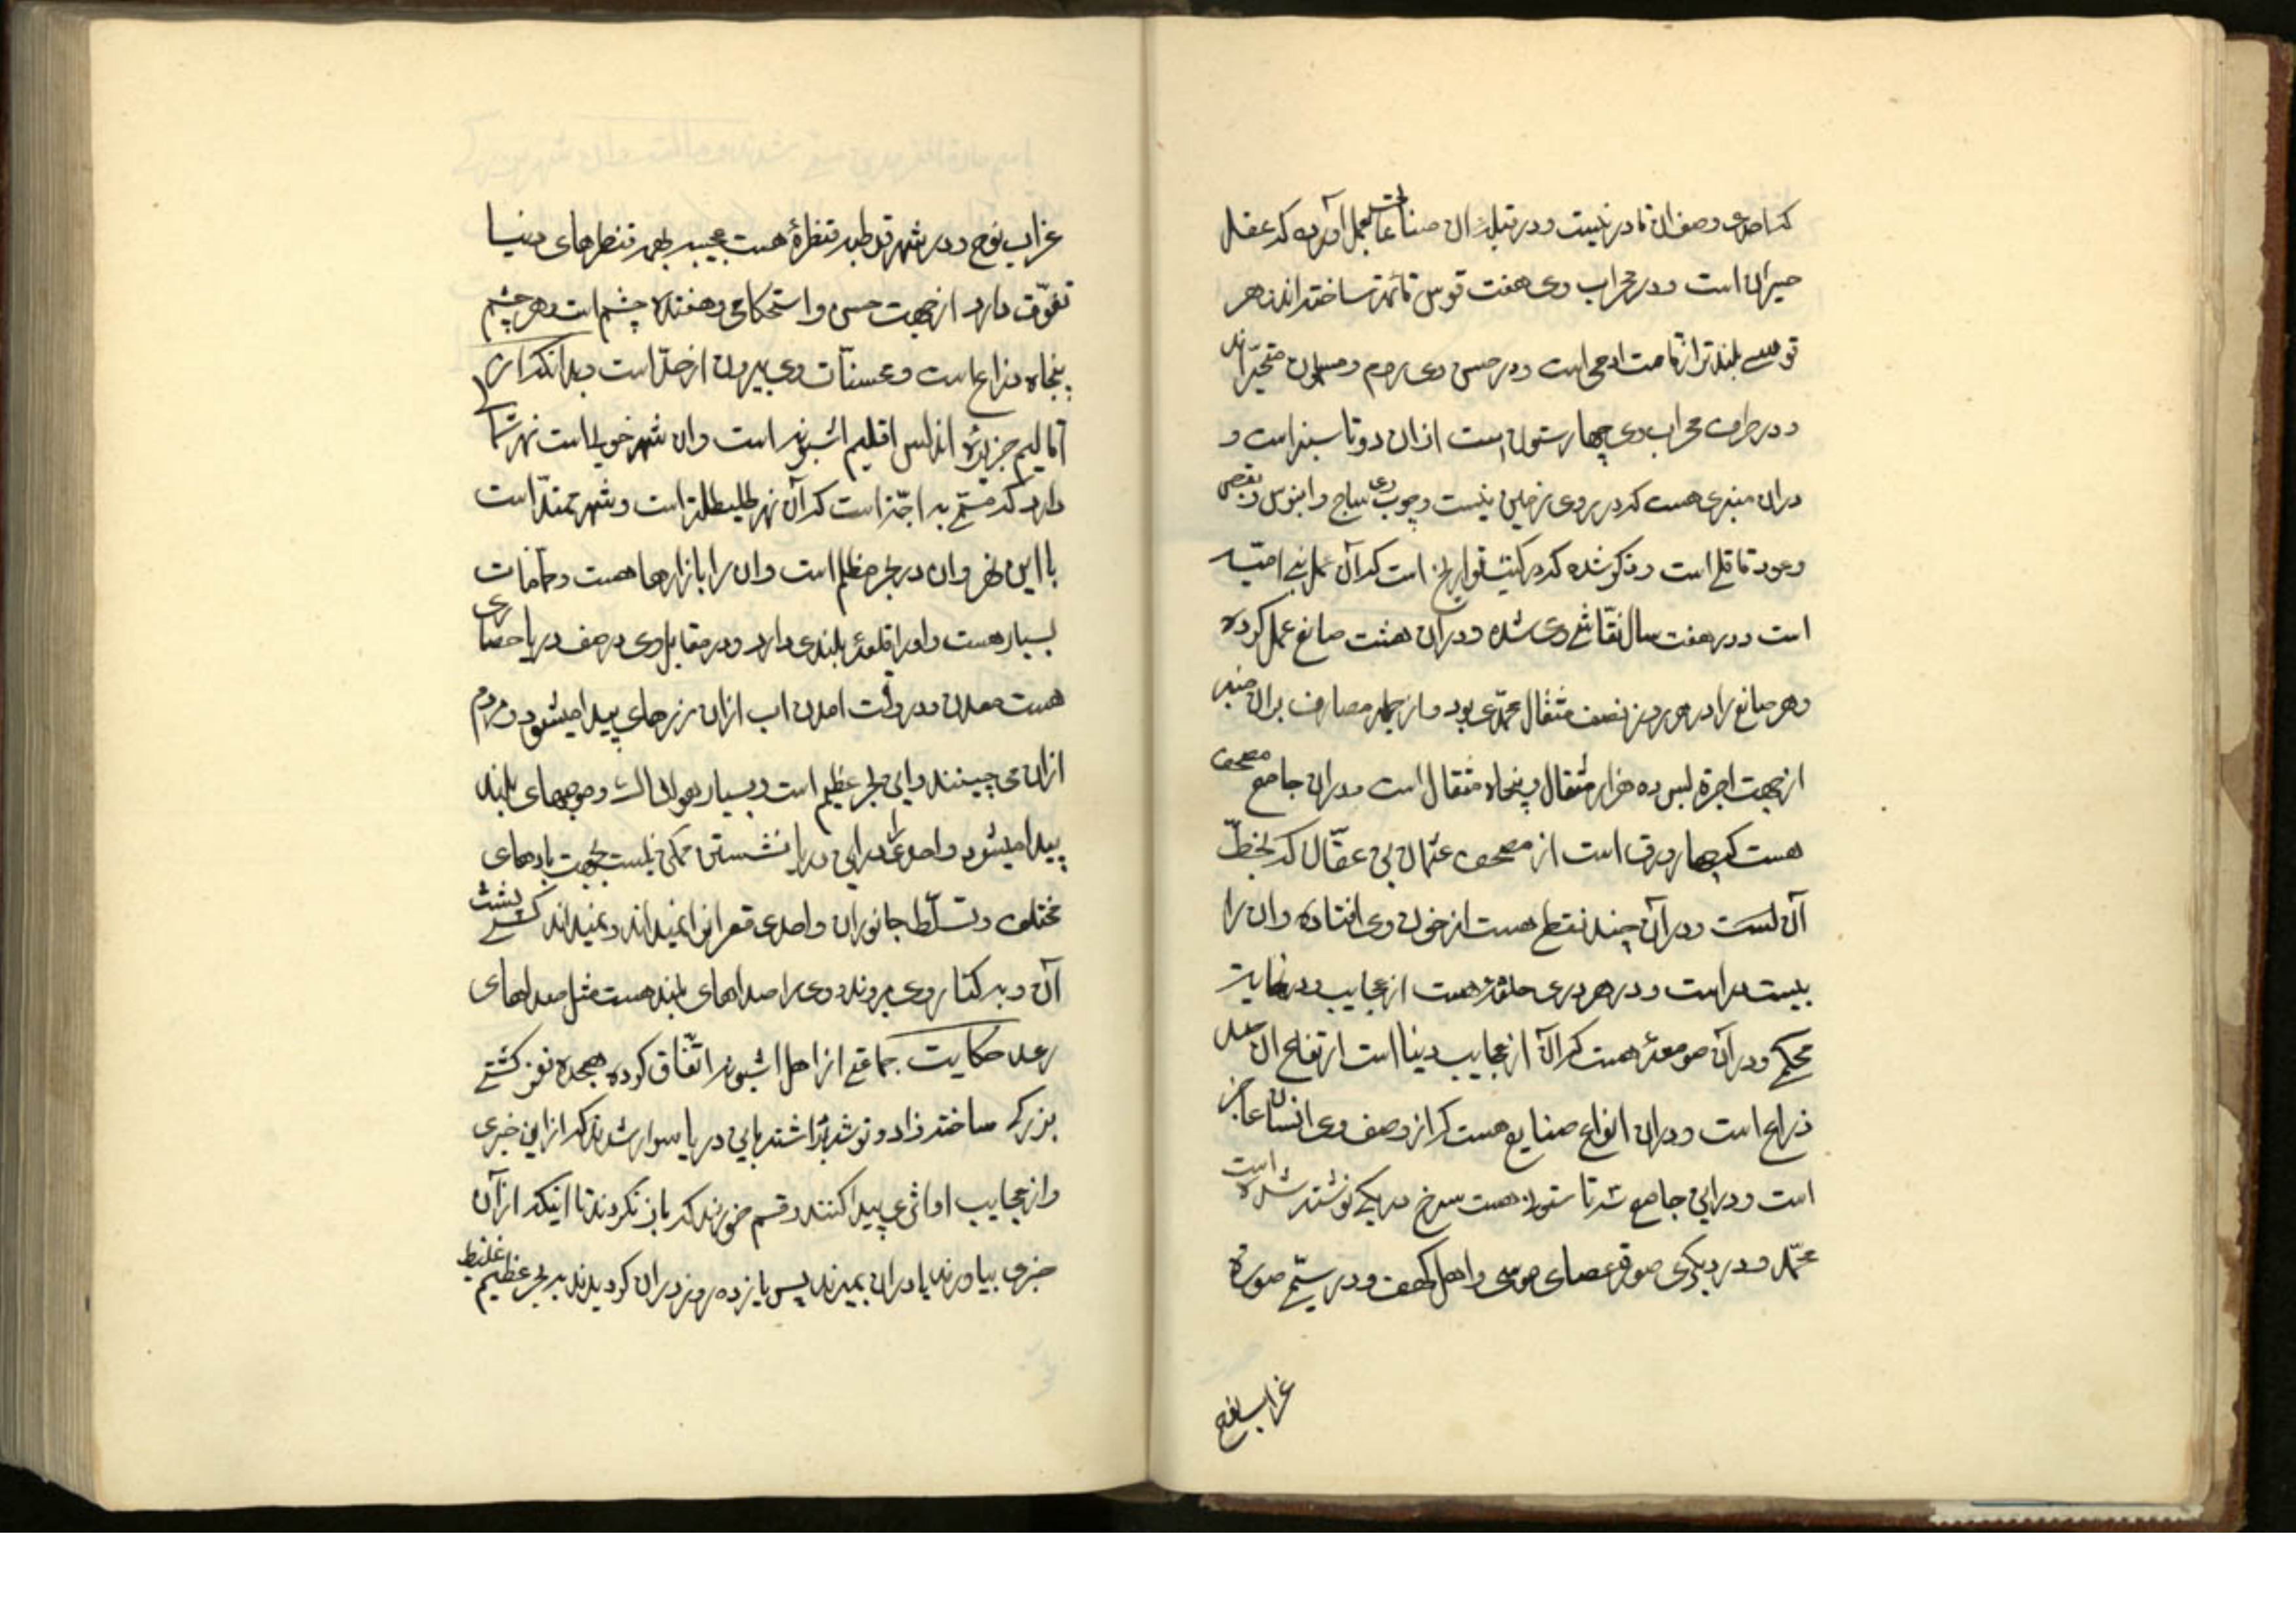 که احدی وصف آن قادر نیست و در قبلهٔ آن صناعات بعمل آورده که عقل
حیران است و در محراب وی هفت قوس قائمه ساخته‌اند هر
قوسے بلندتر از قامت ادمی است و در حسن وی روم و مسلمون متحیّراند
و در طرف محراب وی چهار ستون است ازان دو تا سبز است و
دران منبری هست که در روی زمین نیست و چوب وی ساج و ابنوس و بقص
و عود قاقلے است و ذکر شده که در کتب تواریخ است که آن عمل بنی امیّه
است و در هفت سال نقّاشے وی شده و در آن هشت صانع عمل کرده
و هر صانع را در هر روز نصف مثقال محمّدی بود و از جمله مصارف بران منبر
از جهت اجرة بس ده هزار مثقال و پنجاه مثقال است و دران جامع مصحف
هست که چهار ورق است از مصحف عثمان بن عفّان که بخطّ
آن است و در آن چند نقطه هست از خون وی افتاده و ان را
بیست در است و در هر دری حلقهٔ هست از عجایب و در نهایت
محکم و در آن صومعهٔ هست که آن از عجایب دنیا است ارتفاع ان صد
ذراع است و دران انواع صنایع هست که از وصف وی انسان عاجز
است و در این جامع سه تا ستون هست سرخ در یکے نوشته شده است
محمّد و در دیگری صورة عصای موسی و اهل کهف و در سیّم صورة
غراب نوح
غراب نوح و در شهر قرطبه قنطرهٔ هست عجیبه بهمه قنطرهای دنیا
تفوّق دارد از جهت حسن و استحکام و هفتده چشم است و هر چشم
پنجاه ذراع است و محسنات وی بیرون از حدّ است و بدانکه از
اقالیم جزیرهٔ اندلس اقلیم اشبونه است وان شهر خوبی است نهر
دارد که مسمّی به اجّنه است که آن نهر طلیطله است و شهر ممتدّ است
با این نهر وان در بحر مظلم است وان را بازارها هست و حمّامات
بسیار هست و اورا قلعهٔ بلندی دارد و در مقابل وی در صف دریا حصاری
هست معدن و در وقت امدن اب ازان زرهای پیدا میشود و مردم
ازان می چینند و این بحر عظیم است و بسیار هولناک و موجهای بلند
پیدا میشود و احدی را در این دریا نشستن ممکن نیست بجهت بادهای
مختلف و تسلّط جانوران و احدی قعر انرا نمیداند و نمیداند کسے پشت
آن و به کنار وی میروند و وی را صداهای بلند هست مثل صداهای
رعد حکایت جماعتے از اهل اشبونه اتّفاق کرده هجده نفر کشتے
بزرکے ساخته زاد و توشه برداشته باین دریا سوار شدند که از این خبری
و از عجایب او اثری پیدا کنند و قسم خوردند که باز نکردند تا اینکه از آن
خبری بیاورند یا دران بمیرند پس یازده روز دران کردیدند به بحر عظیم غلیظ